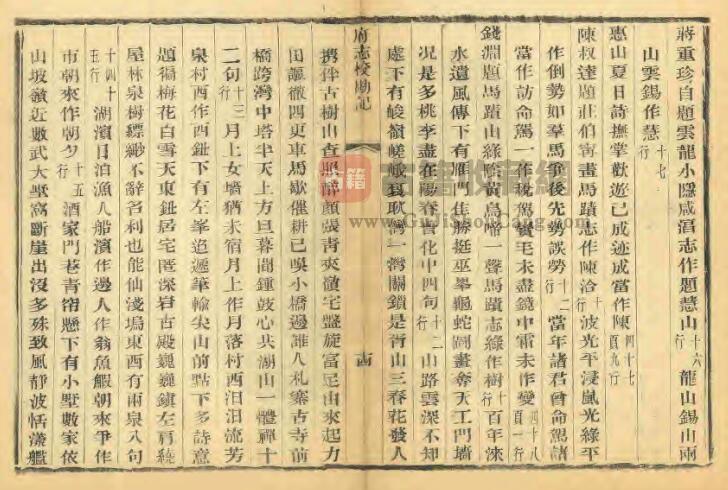 蔣重珍自題雲龍小隱咸淳志作題慧山十六行龍山錫山兩
山雲錫作慧十七行
惠山夏日詩撫掌歡遊已成迹成當作陳四十七頁九行
陳叔達題莊伯甯畫馬蹟志作陳洽十行波光平浸嵐光綠平
作倒勢如羣馬爭後先勢誤勞十二行當年諸君曾命駕諸
當作訪命駕一作稅駕實毛未盡錢中雷未作變四十八頁一行
錢淵題馬蹟山綠陰黃鳥啼一聲馬蹟志綠作樹十行百年淶
水遺風傳下有雁門佳勝挺巫峯龜蛇圖畫奪天工門墻
况是多桃李盡在陽春育化中四句十二行山路雲深不知
處下有峻嶺嶢巇裒耿灣一灣關鎖是胥山三春花發人
府志校勘記
西
携伴古樹山查照醉顏張青夾嶺宅盤旋富足由來起力
田讙徹四更車馬歇催耕已唤小橋邊誰人札寨古寺前
橋跨灣中塔半天上方旦暮聞鍾鼓心共湖山一體禪十
二句十三行月上女墻猶未宿月上作月落村西汨汨流芳
泉村西作西鈕下有左峯迢遞筆輸尖山前點下多詩意
題徧梅花白雪天東鈕居宅匿深岩古殿巍巍鎭左肩繞
屋林泉樹縹緲不辭名利也能仙淺塢東西有兩泉八句
十四行湖濱日泊漁人船濱作邊人作翁魚鰕朝來爭作
市朝來作朝夕十五行酒家門巷青帘懸下有小墅數家依
山坡嶺近數武大墅窩斷崖出沒多殊致風靜波恬漾艦